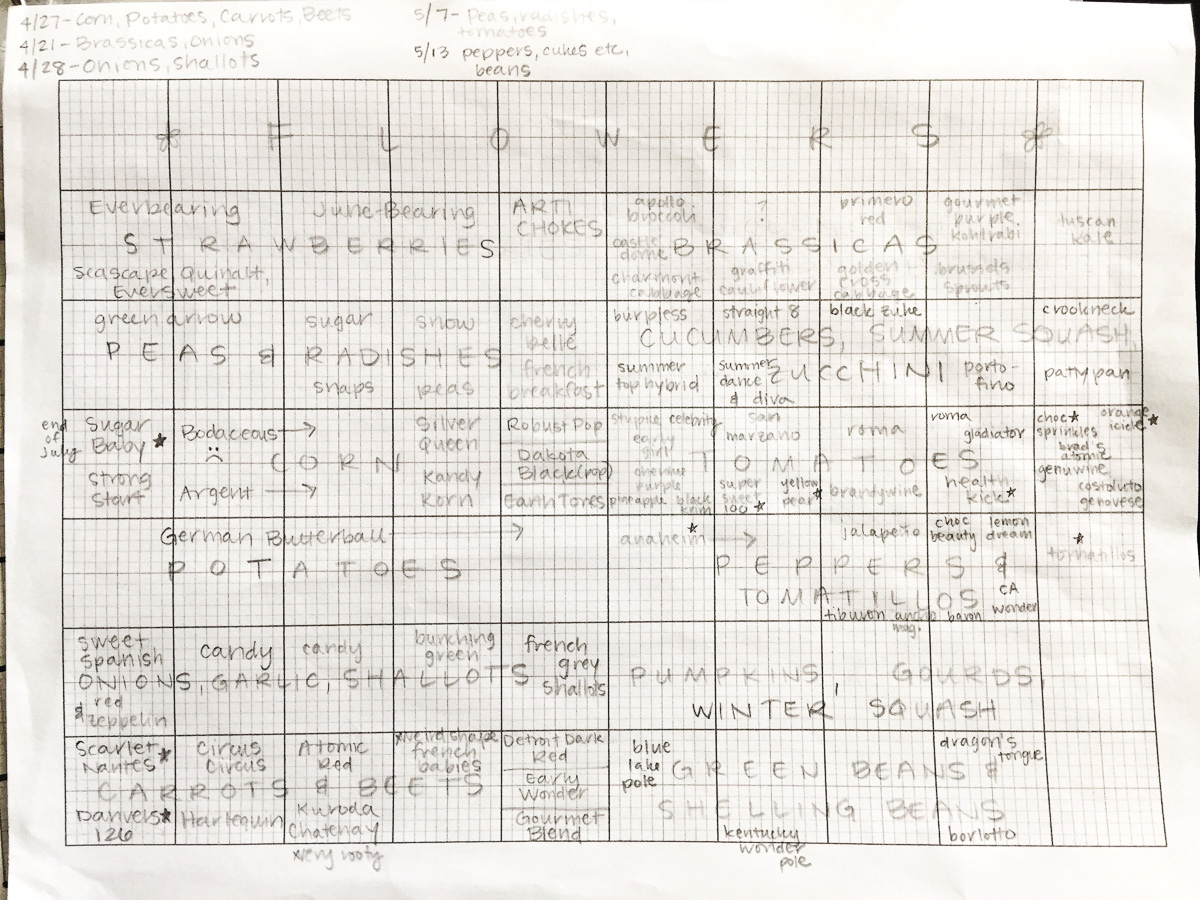 4/27- Corn, Potatoes, Carrots, Beets
4/21- Brassicas, Onions
4/28- Onions, Shallots
5/7- Peas, radishes,
tomatoes
5/13 peppers, cukes etc,
beans
FLOWERS
Everbearing
June-Bearing
STRAWBERRIES
Seascape, Quinalt,
Eversweet
ARTI
CHOKES
apollo
broccoli
?
primero
red
gourmet
purple
kohlrabi
tuscan
kale
castle
dome
BRASSICAS
charmont
cabbage
graffiti
cauliflower
golden
cross
cabbage
brussels
sprouts
green arrow
sugar
snow
cherry
belle
PEAS & RADISHES
snaps
peas
french
breakfast
burpless
straight 8
black zuke
crookneck
CUCUMBERS, SUMMER SQUASH,
ZUCCHINI
summer
top hybrid
summer
dance
& diva
porto-
fino
pattypan
end
of
july
Sugar
Baby ★
strong
start
Bodaceous →
☹
Argent →
CORN
Silver
Queen
Kandy
Korn
Robust Pop
Dakota
Black (Pop)
Earth Tones
stupice celebrity
early
girl
cherokee
purple
pineapple black
krim
san
marzano
super
sweet
100 ★
yellow
pear ★
TOMATOES
roma
brandywine
roma
gladiator
health
kick ★
choc ★
sprinkles
orange
icicle ★
brad's
atomic
genuwine
costoluto
genovese
German Butterball →
POTATOES
anaheim ★ →
jalapeño
choc
beauty
lemon
dream
★
tomatillos
PEPPERS &
TOMATILLOS
CA
wonder
tiburon ancho
mag.
baron
sweet
Spanish
candy
candy
bunching
green
french
grey
shallots
ONIONS, GARLIC, SHALLOTS
& red
zeppelin
PUMPKINS, GOURDS,
WINTER SQUASH
Scarlet
Nantes ★
Circus
Circus
Atomic
Red
xweird shape
french
babies
Detroit Dark
Red
Early
Wonder
Gourmet
Blend
CARROTS & BEETS
Danvers ★
126
Harlequin
Kuroda
Chatenay
xvery rooty
blue
lake
pole
dragon's
tongue
GREEN BEANS &
SHELLING BEANS
kentucky
wonder
pole
borlotto